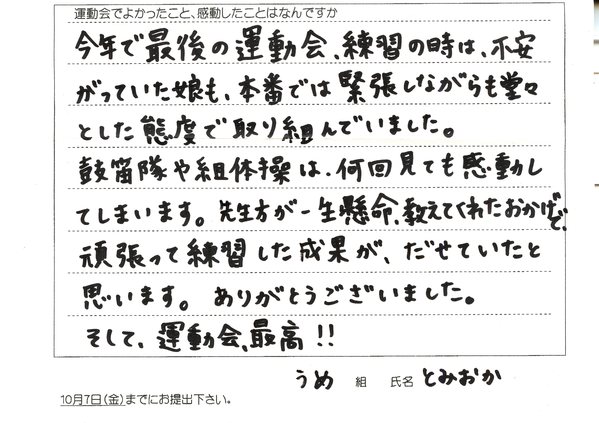 運動会でよかったこと、感動したことはなんですか
今年で最後の運動会、練習の時は、不安
がっていた娘も、本番では緊張しながらも堂々
とした態度で取り組んでいました。
鼓笛隊や組体操は、何回見ても感動し
てしまいます。先生方が一生懸命、教えてくれたおかげで、
頑張って練習した成果が、だせていたと
思います。ありがとうございました。
そして、運動会、最高!!
うめ 組 氏名 とみおか
10月7日(金)までにお提出下さい。